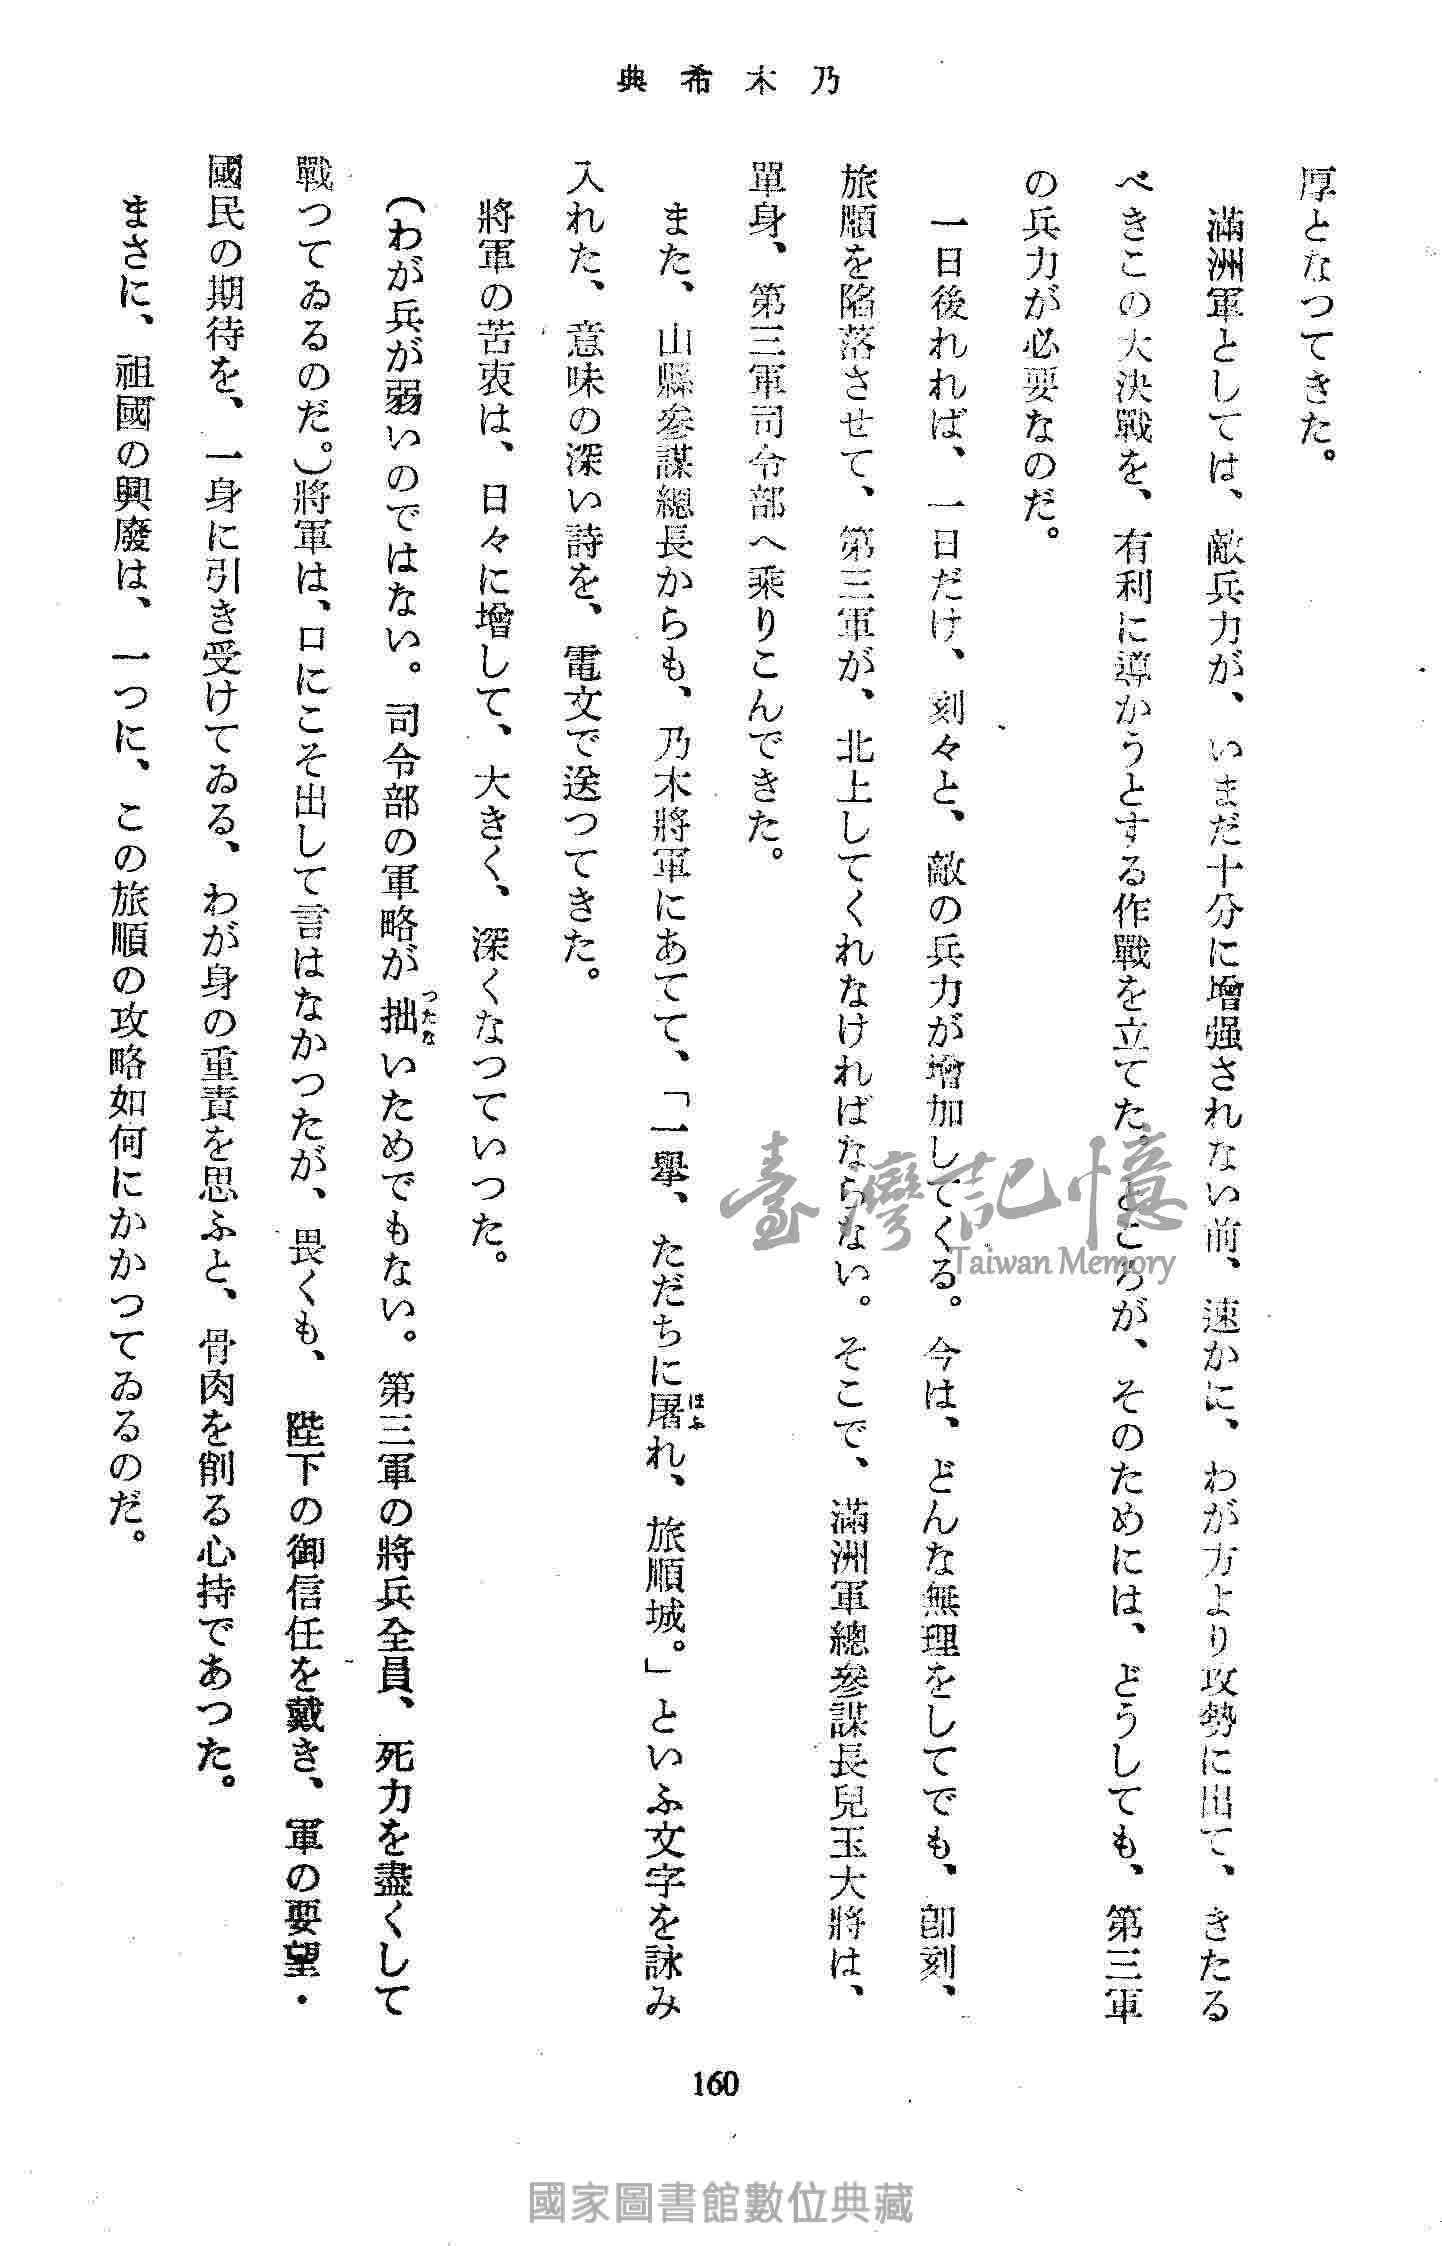 乃木希典
厚となつてきた。
滿洲軍としては、敵兵力が、いまだ十分に增强されない前、速かに、わが方より攻勢に出て、きたる
べきこの大決戰を、有利に導かうとする作戰を立てた。ところが、そのためには、どうしても、第三軍
の兵力が必要なのだ。
一日後れれば、一日だけ、刻々と、敵の兵力が增加してくる。今は、どんな無理をしてでも、卽刻、
旅順を陷落させて、第三軍が、北上してくれなければならない。そこで、滿洲軍總參謀長兒玉大將は、
單身、第三軍司令部へ乘りこんできた。
また、山縣參謀總長からも、乃木將軍にあてて、「一擧、ただちに屠れ、旅順城。」といふ文字を詠み
ほふ
入れた、意味の深い詩を、電文で送つてきた。
將軍の苦衷は、日々に增して、大きく、深くなつていつた。
(わが兵が弱いのではない。司令部の軍略が拙いためでもない。第三軍の將兵全員、死力を盡くして
つたな
戰つてゐるのだ。)將軍は、口にこそ出して言はなかつたが、畏くも、陛下の御信任を戴き、軍の要望・
國民の期待を、一身に引き受けてゐる、わが身の重責を思ふと、骨肉を削る心持であつた。
まさに、祖國の興廢は、一つに、この旅順の攻略如何にかかつてゐるのだ。
160
臺灣記憶
Taiwan Memory
國家圖書館數位典藏